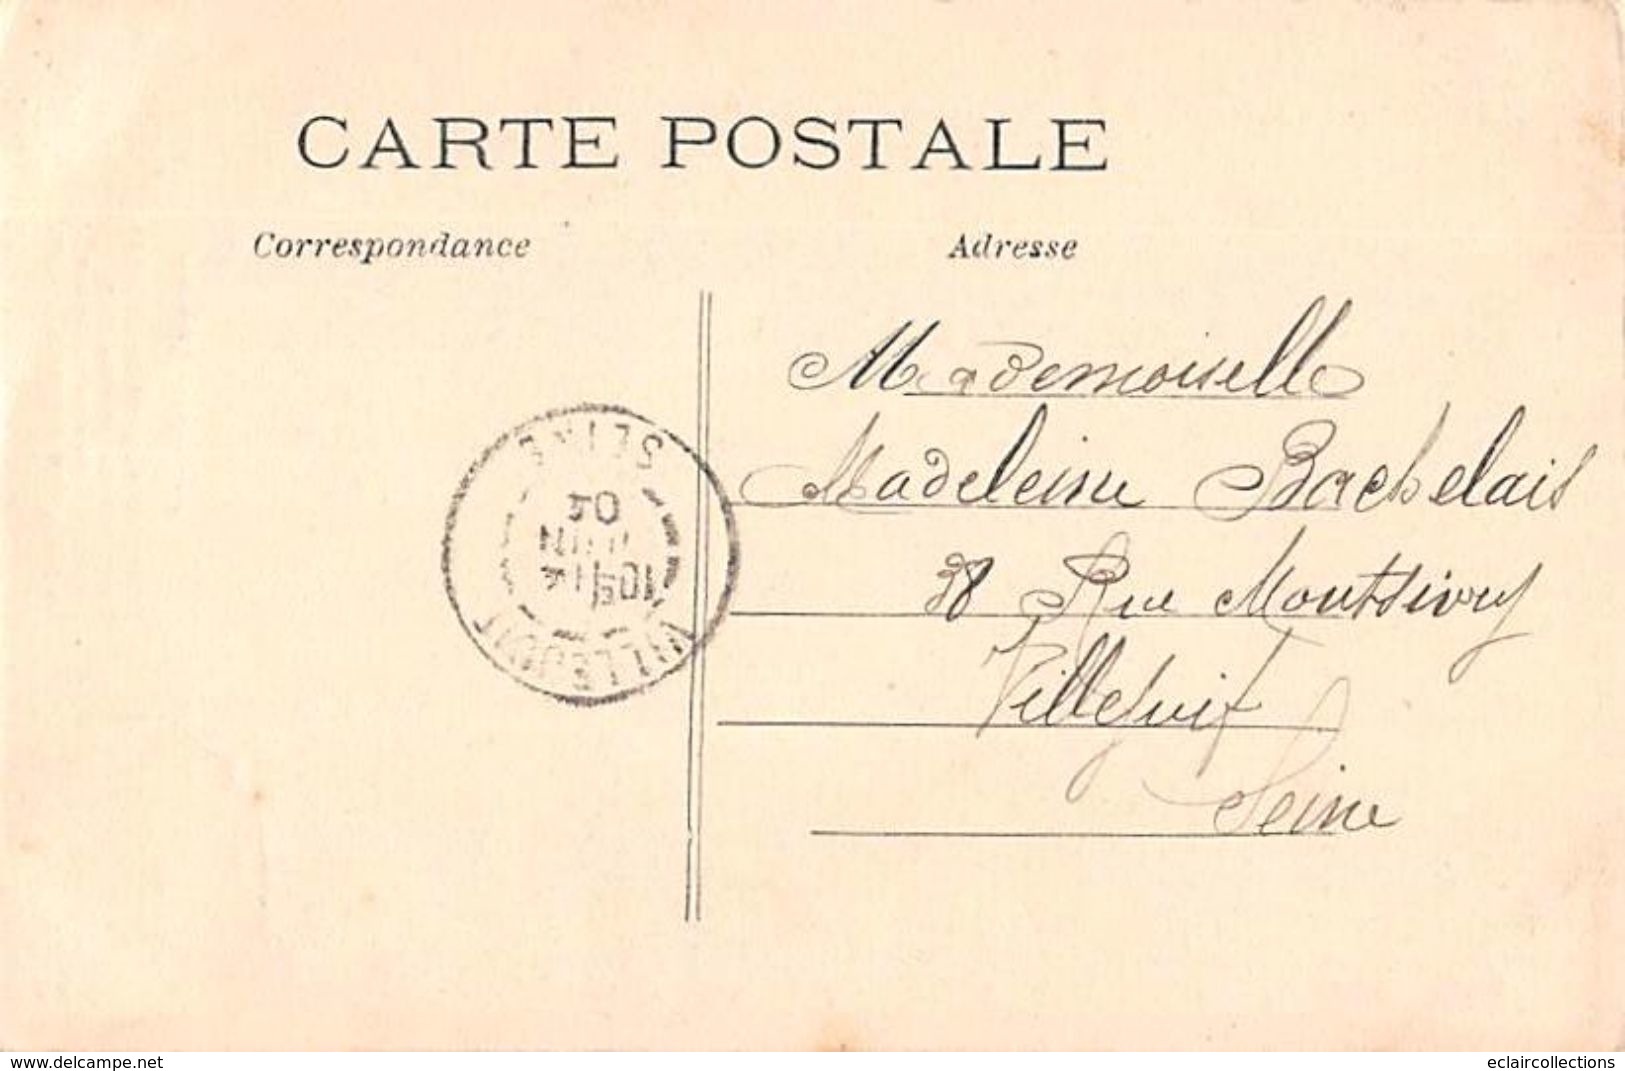 CARTE POSTALE
Correspondance
Adresse
Mademoiselle
Madeleine Bachelais
38 Rue Montsivry
Villejuif
Seine
VILLEJUIF
10
JUIN
04
SEINE
www.delcampe.net
eclaircollections